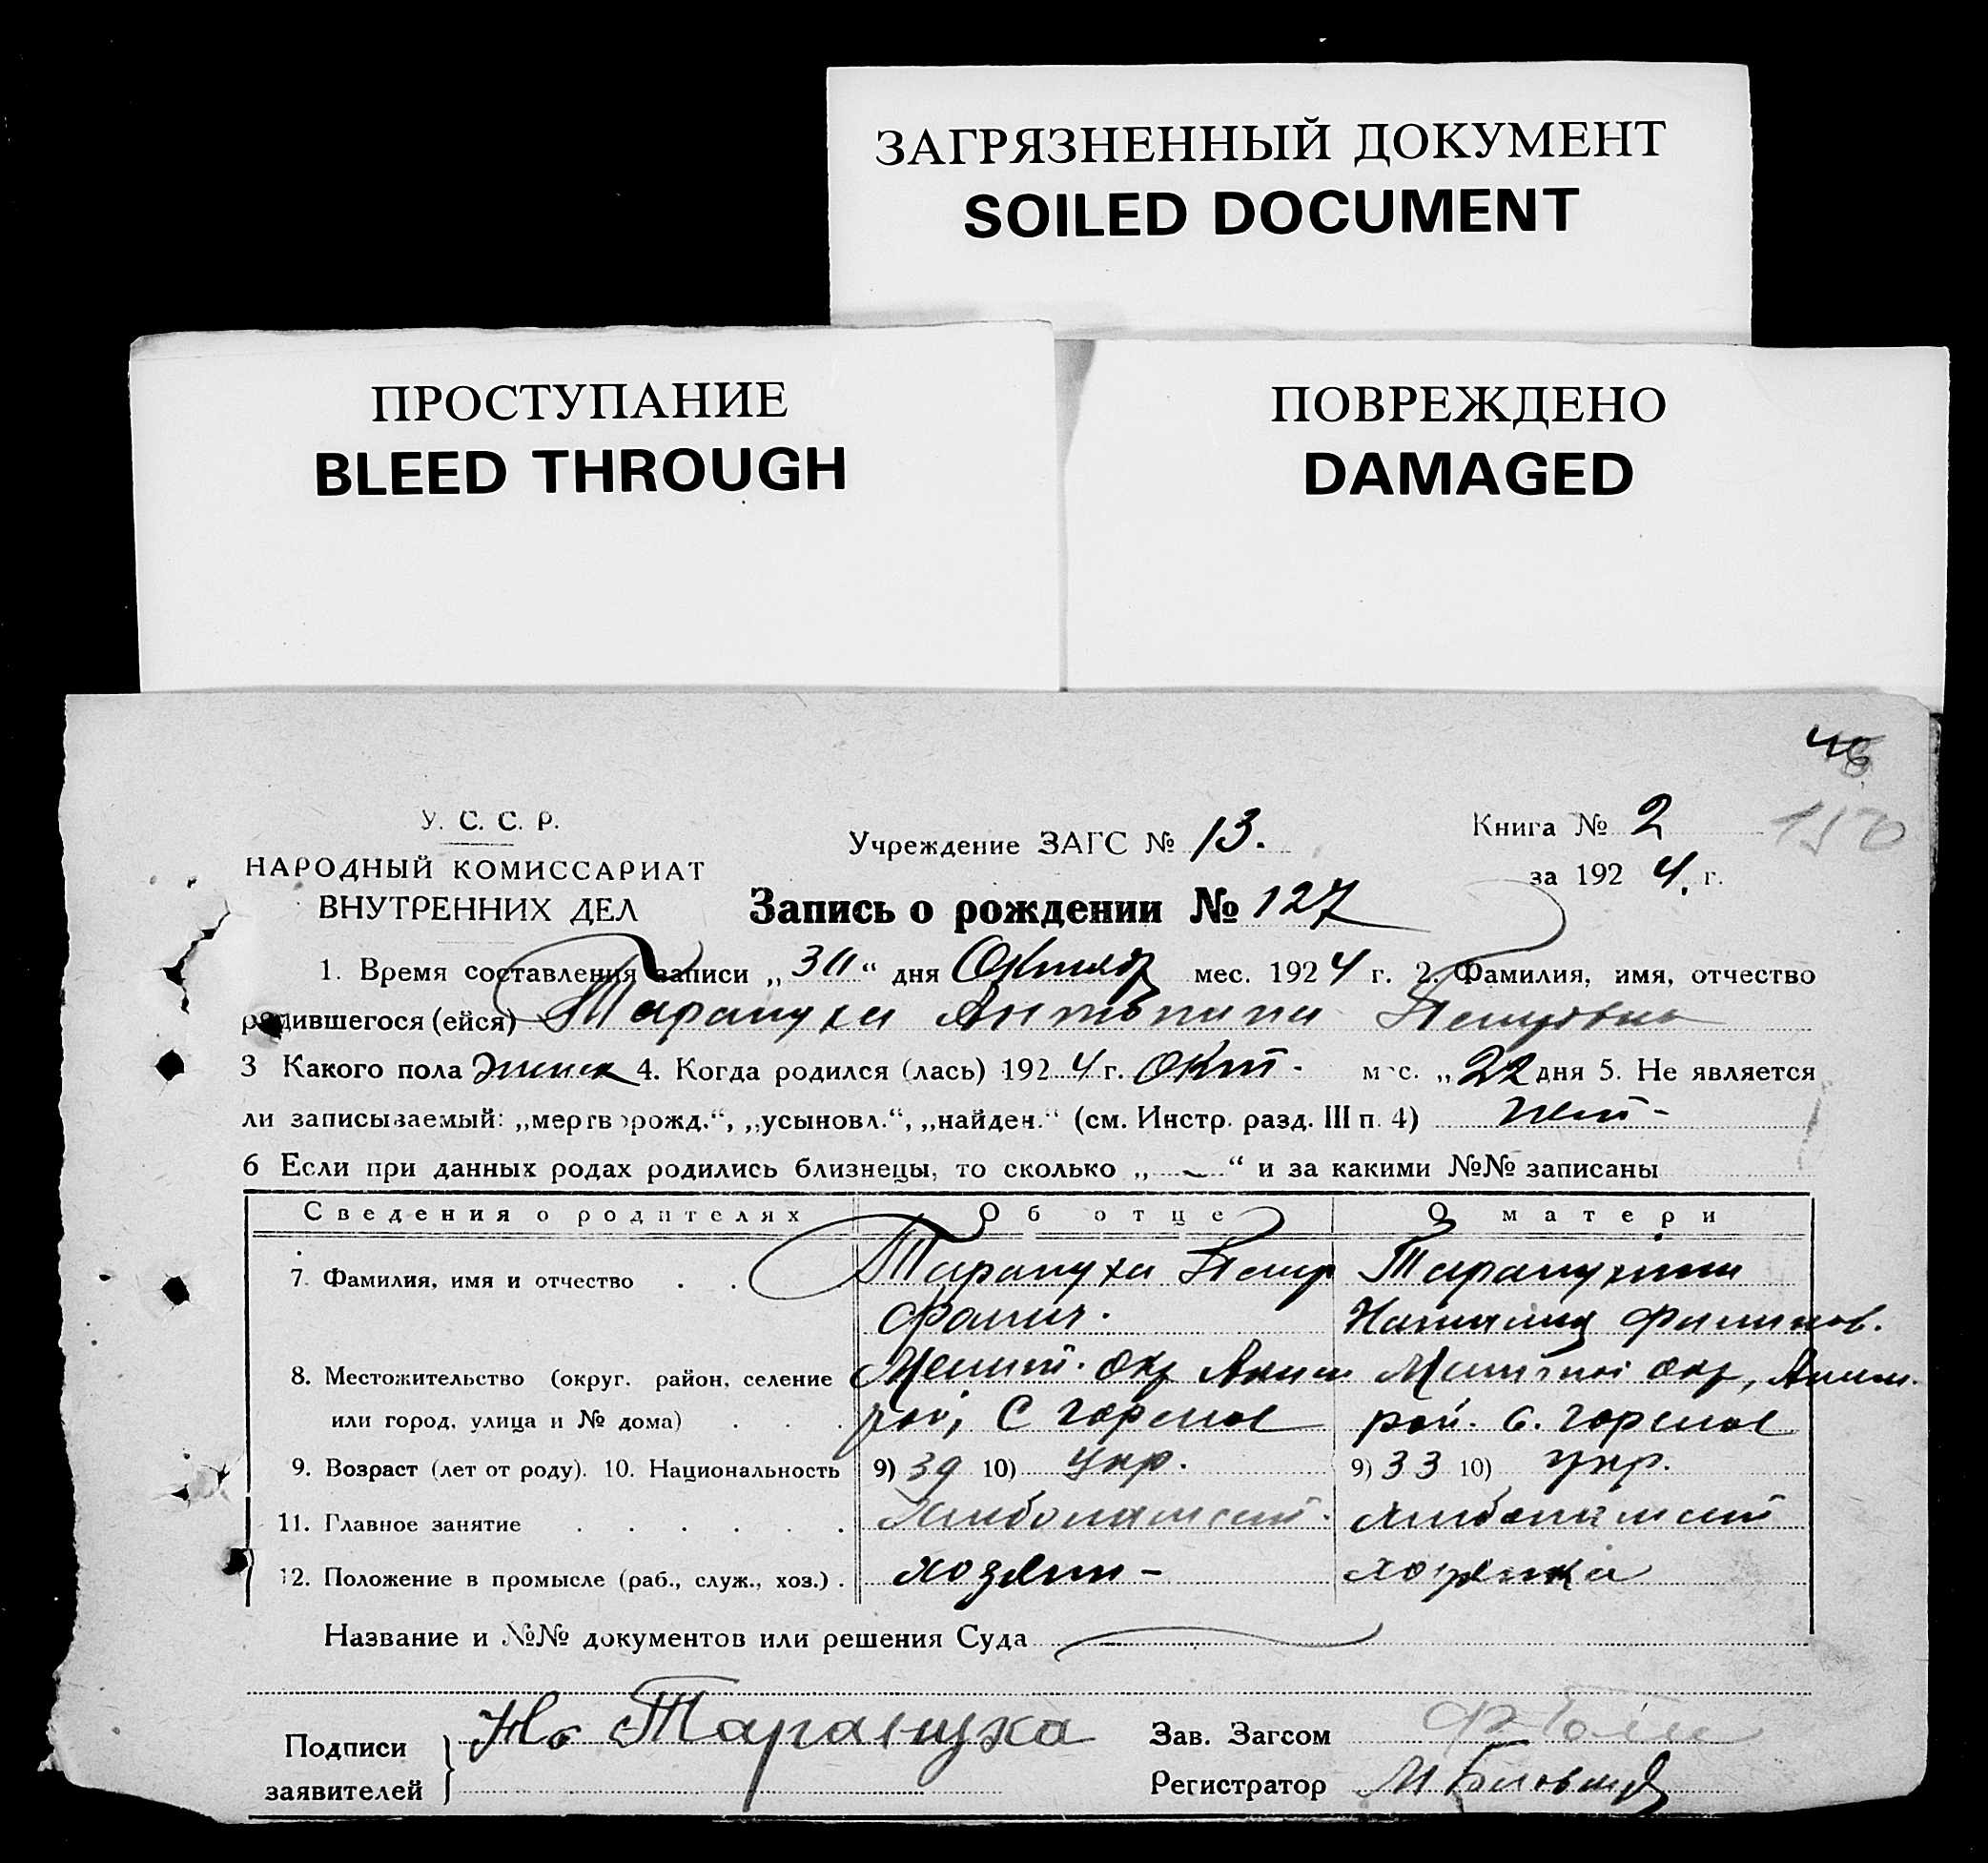 ЗАГРЯЗНЕННЫЙ ДОКУМЕНТ
SOILED DOCUMENT
ПРОСТУПАНИЕ
BLEED THROUGH
ПОВРЕЖДЕНО
DAMAGED
46
150
У. С. С. Р.
НАРОДНЫЙ КОМИССАРИАТ
ВНУТРЕННИХ ДЕЛ
Учреждение ЗАГС № 13.
Книга № 2
за 1924. г.
Запись о рождении № 127
1. Время составления записи „ 30 “ дня Октябр мес. 1924 г. 2. Фамилия, имя, отчество
родившегося (ейся) Тарануха Антонина Петровна
3 Какого пола женск 4. Когда родился (лась) 1924 г. окт. мес. „ 22 дня 5. Не является
ли записываемый: „мертворожд.“, „усыновл.“, „найден.“ (см. Инстр. разд. III п. 4) нет
6 Если при данных родах родились близнецы, то сколько „ - “ и за какими №№ записаны
Сведения о родителях Об отце О матери
7. Фамилия, имя и отчество Тарануха Петр Таранухина
Фомич. Наталия Филипов.
8. Местожительство (округ. район, селение Мелит. окр Аким окр, Аким.
или город, улица и № дома) рай, С Горелое рай. С. Горелое
9. Возраст (лет от роду). 10. Национальность 9) 39 10) укр. 9) 33 10) укр.
11. Главное занятие хлебопашест. хлебопашест
12. Положение в промысле (раб., служ., хоз.) хозяин - хозяйка
Название и №№ документов или решения Суда
Подписи Тарануха Зав. Загсом
заявителей Регистратор